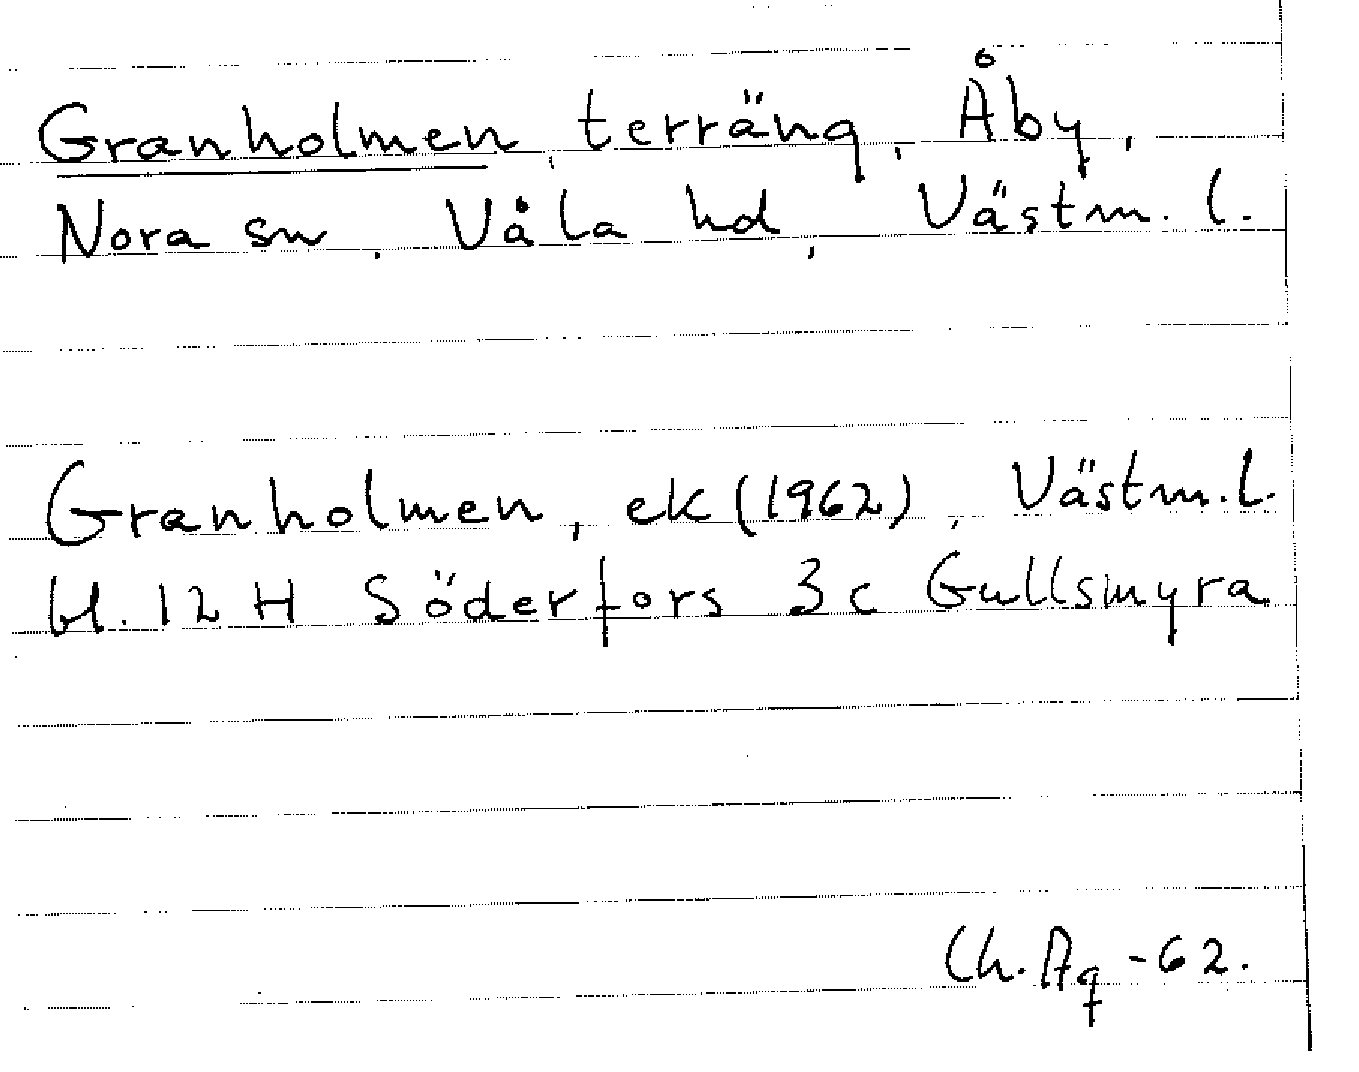 Granholmen, terräng, Åby,
Nora sn, Våla hd, Västm. l.
Granholmen, ek (1962), Västm. l.
bl. 12 H Söderfors 3 c Gullsmyra
Ch. Ag -62.